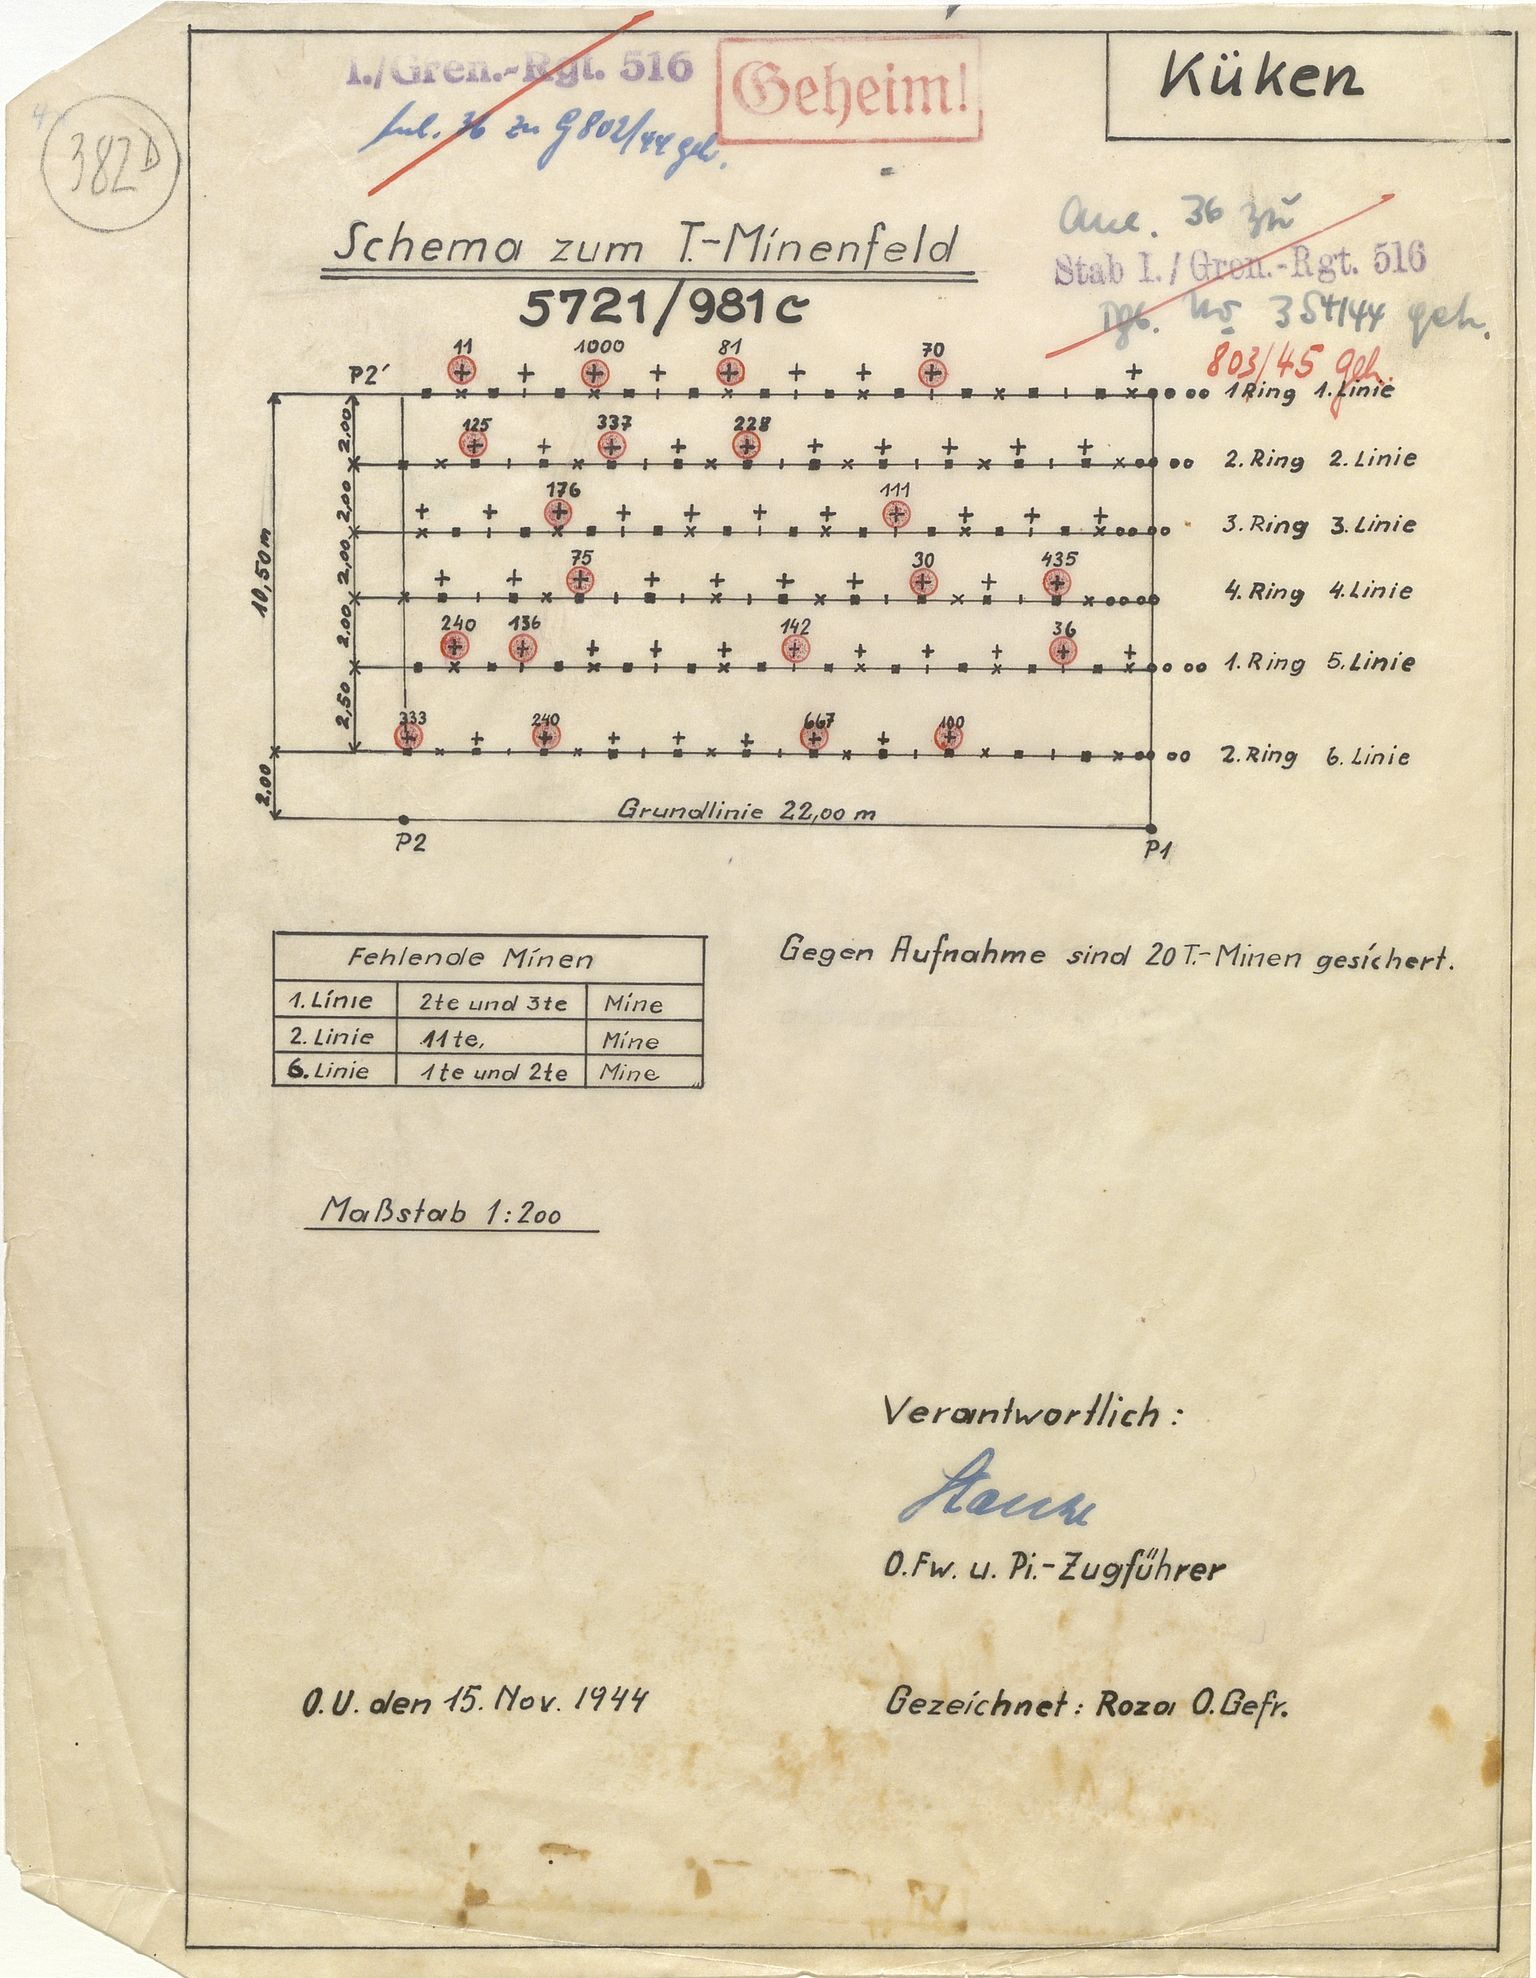 I./Gren.-Rgt. 516
Geheim!
Küken
36 zu G 802/44 geh.
382 D
Schema zum T.-Minenfeld
5721/981c
Anl. 36 zu
Stab I./Gren.-Rgt. 516
Nr. 354/44 geh.
803/45 geh.
P2´ 11 1000 81 70
1 Ring 1. Linie
2.00
125 337 228
2. Ring 2. Linie
2,00
176 111
3. Ring 3. Linie
2,00
75 30 435
4. Ring 4. Linie
10,50 m
2.00
240 136 142 36
1. Ring 5. Linie
2,50
333 240 667 100
2. Ring 6. Linie
2.00
Grundlinie 22,00 m
P2 P1
Fehlende Minen
1. Linie 2te und 3te Mine
2. Linie 11te, Mine
6. Linie 1te und 2te Mine
Gegen Aufnahme sind 20 T.-Minen gesichert.
Maßstab 1:200
Verantwortlich:
O.Fw. u. Pi.-Zugführer
O.U. den 15. Nov. 1944
Gezeichnet: Roza O.Gefr.